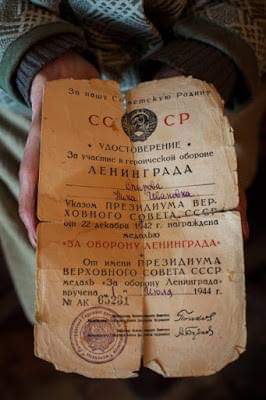 За нашу Советскую Родину
СССР
УДОСТОВЕРЕНИЕ
За участие в героической обороне
ЛЕНИНГРАДА
Нина Ивановна
Указом ПРЕЗИДИУМА ВЕР-
ХОВНОГО СОВЕТА СССР
от 22 декабря 1942 г. награждена
медалью
«ЗА ОБОРОНУ ЛЕНИНГРАДА»
От имени ПРЕЗИДИУМА
ВЕРХОВНОГО СОВЕТА СССР
медаль «За оборону Ленинграда»
вручена 1 июля 1944 г.
№ АК 65231